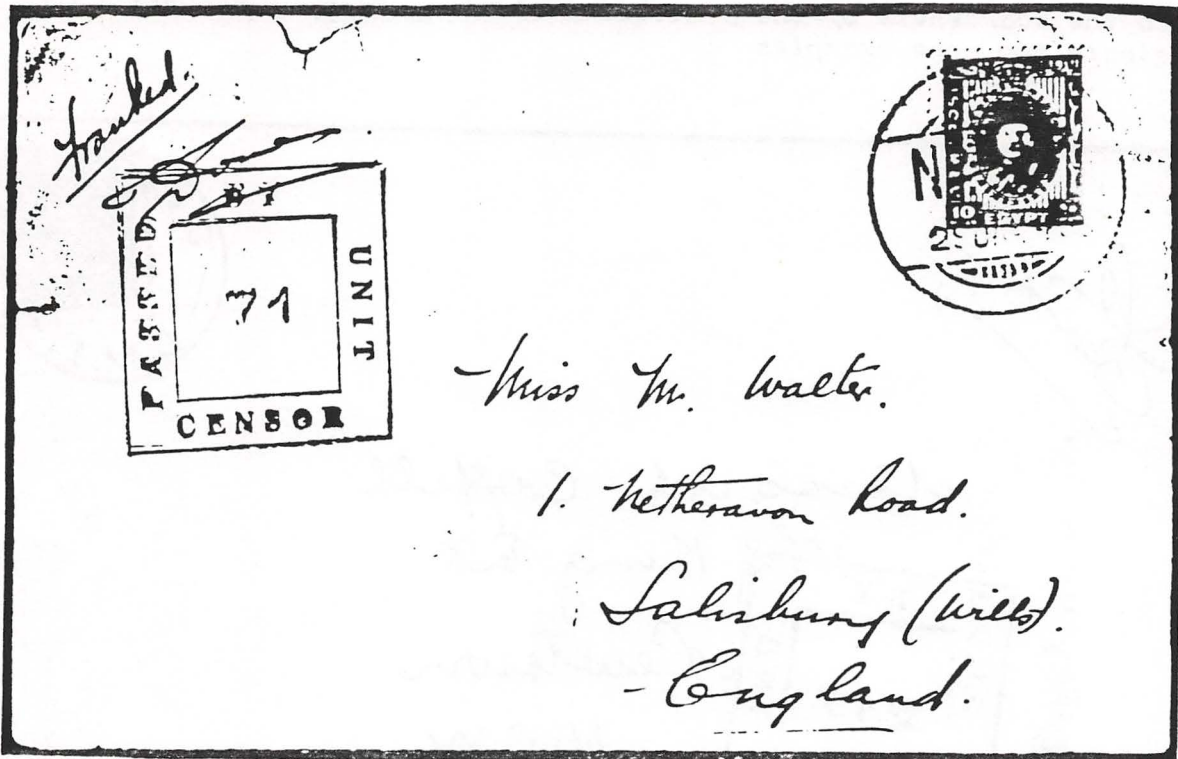 Franked.
PASSED BY UNIT CENSOR
71
N
10 EGYPT
Miss M. Walter.
1. Netheravon Road.
Salisbury (Wilts).
England.